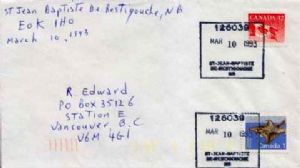 St Jean Baptiste De Restigouche, N.B.
E0K 1H0
March 10, 1993
CANADA 42
126039
MAR 10 1993
ST-JEAN-BAPTISTE
DE-RESTIGOUCHE
NB
R. Edward
PO Box 35126
Station E
Vancouver, B.C.
V6M 4G1
126039
MAR 10 1993
ST-JEAN-BAPTISTE
DE-RESTIGOUCHE
NB
1